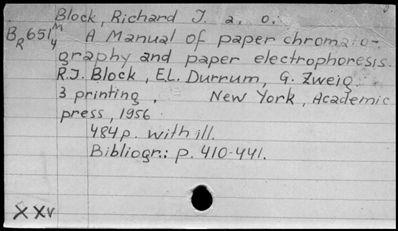 Block, Richard J. a. o.
BR651/4 M A Manual of paper chromato-
graphy and paper electrophoresis.
R.J. Block, E.L. Durrum, G. Zweig.
3 printing, New York, Academic
press, 1956
484 p. with ill.
Bibliogr.: p. 410-441.
X XV